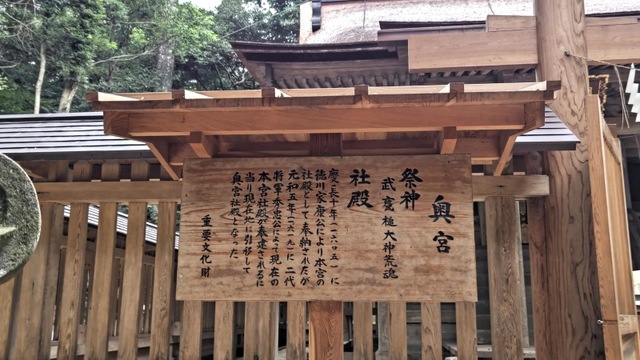 奥宮
祭神
武甕槌大神荒魂
社殿
慶長十年(一六〇五)に
徳川家康公により本宮の
社殿として奉納されたが
元和五年(一六一九)に二代
将軍秀忠公によって現在の
本宮社殿が奉建されるに
当り現在地に引移して
奥宮社殿となった。
重要文化財